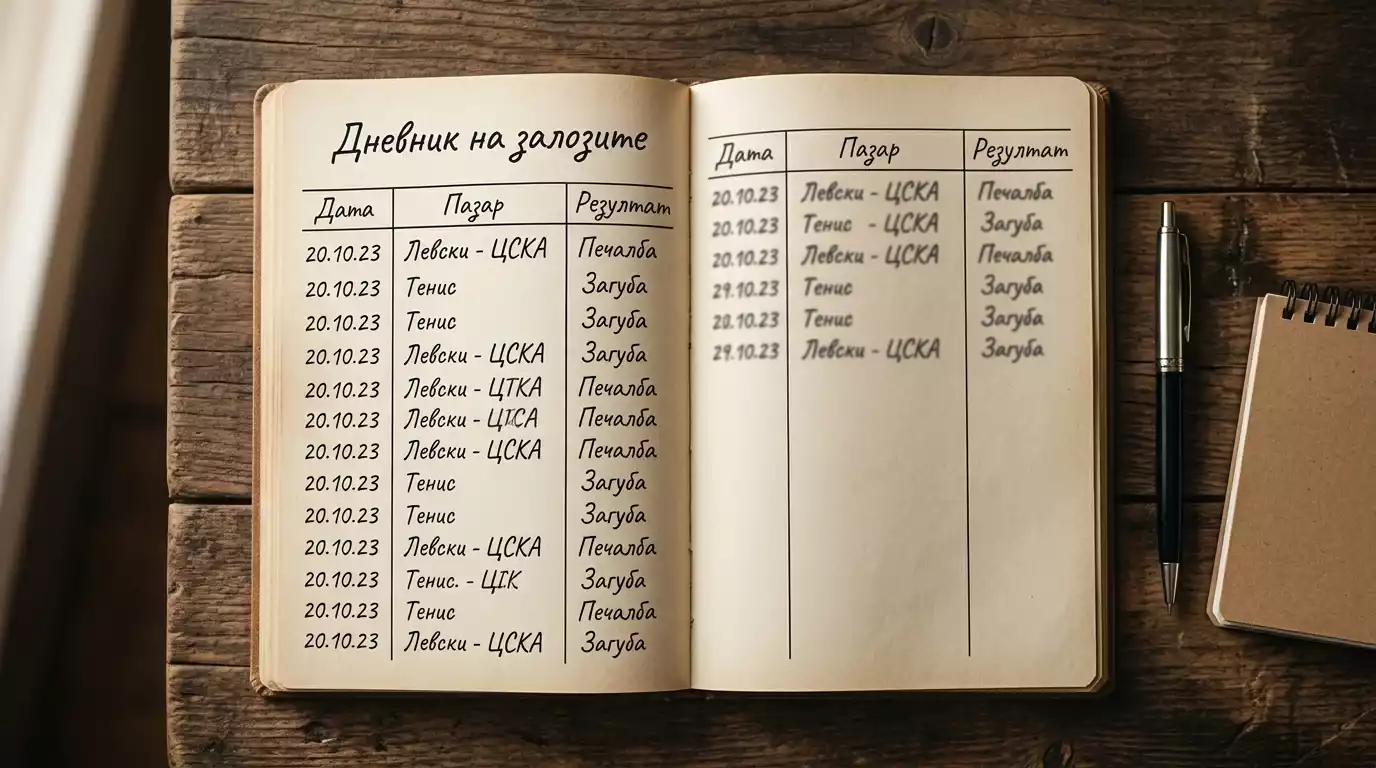 Дневник на залозите
Дата Пазар Резултат
20.10.23 Левски - ЦСКА Печалба
20.10.23 Тенис Загуба
20.10.23 Тенис Загуба
20.10.23 Левски - ЦСКА Загуба
20.10.23 Левски - ЦТКА Печалба
20.10.23 Левски - Печалба
20.10.23 Левски - ЦСКА Печалба
20.10.23 Тенис Загуба
20.10.23 Тенис Загуба
20.10.23 Левски - ЦСКА Печалба
20.10.23 Тенис. - Загуба
20.10.23 Тенис Печалба
20.10.23 Левски - ЦСКА Загуба
Дата Пазар Резултат
20.10.23 Левски - ЦСКА Печалба
20.10.23 Тенис - ЦСКА Загуба
20.10.23 Левски - ЦСКА Печалба
29.10.23 Тенис Загуба
20.10.23 Тенис Загуба
29.10.23 Левски - ЦСКА Загуба